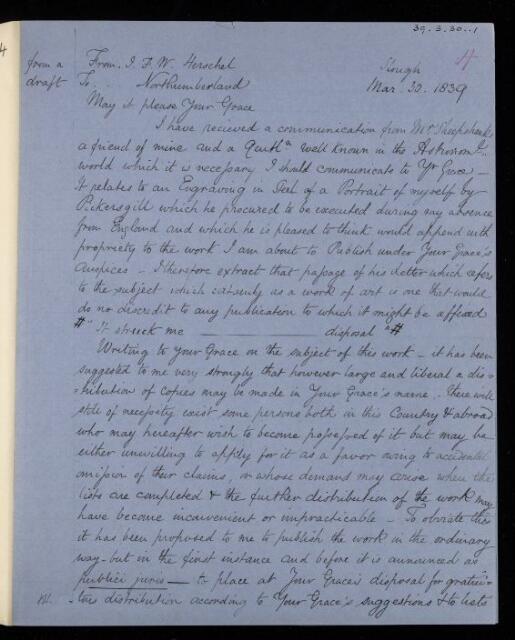 39.3.30..1
4
form a From. J. F. W. Herschel Slough
draft To. Northumberland Mar. 30. 1839
May it please Your Grace
I have recieved a communication from Mr Sheepshanks
a friend of mine and a Gentn well known in the Astronoml
world which it is necessary I should communicate to Yr Grace —
It relates to an Engraving in Steel of a Portrait of myself by
Pickersgill which he procured to be executed during my absence
from England and which he is pleased to think would append with
propriety to the work I am about to Publish under Your Grace's
Auspices — I therefore extract that passage of his letter which refers
to the subject which certainly as a work of art is one that would
do no discredit to any publication to which it might be affixed
#" It struck me ——— disposal "#
Writing to Your Grace on the subject of this work — it has been
suggested to me very strongly that however large and liberal a dis-
=tribution of copies may be made in Your Grace's name . there will
still of necessity exist some persons both in this Country & abroad
who may hereafter wish to become possessed of it but may be
either unwilling to apply for it as a favor owing to accidental
omission of their claims, or whose demand may arise when the
lists are completed & the further distribution of the work may
have become inconvenient or impracticable — To obviate this
it has been proposed to me to publish the work in the ordinary
way — but in the first instance and before it is announced as
publici juris — to place at Your Grace's disposal for gratui-
-tous distribution according to Your Grace's suggestions & to lists